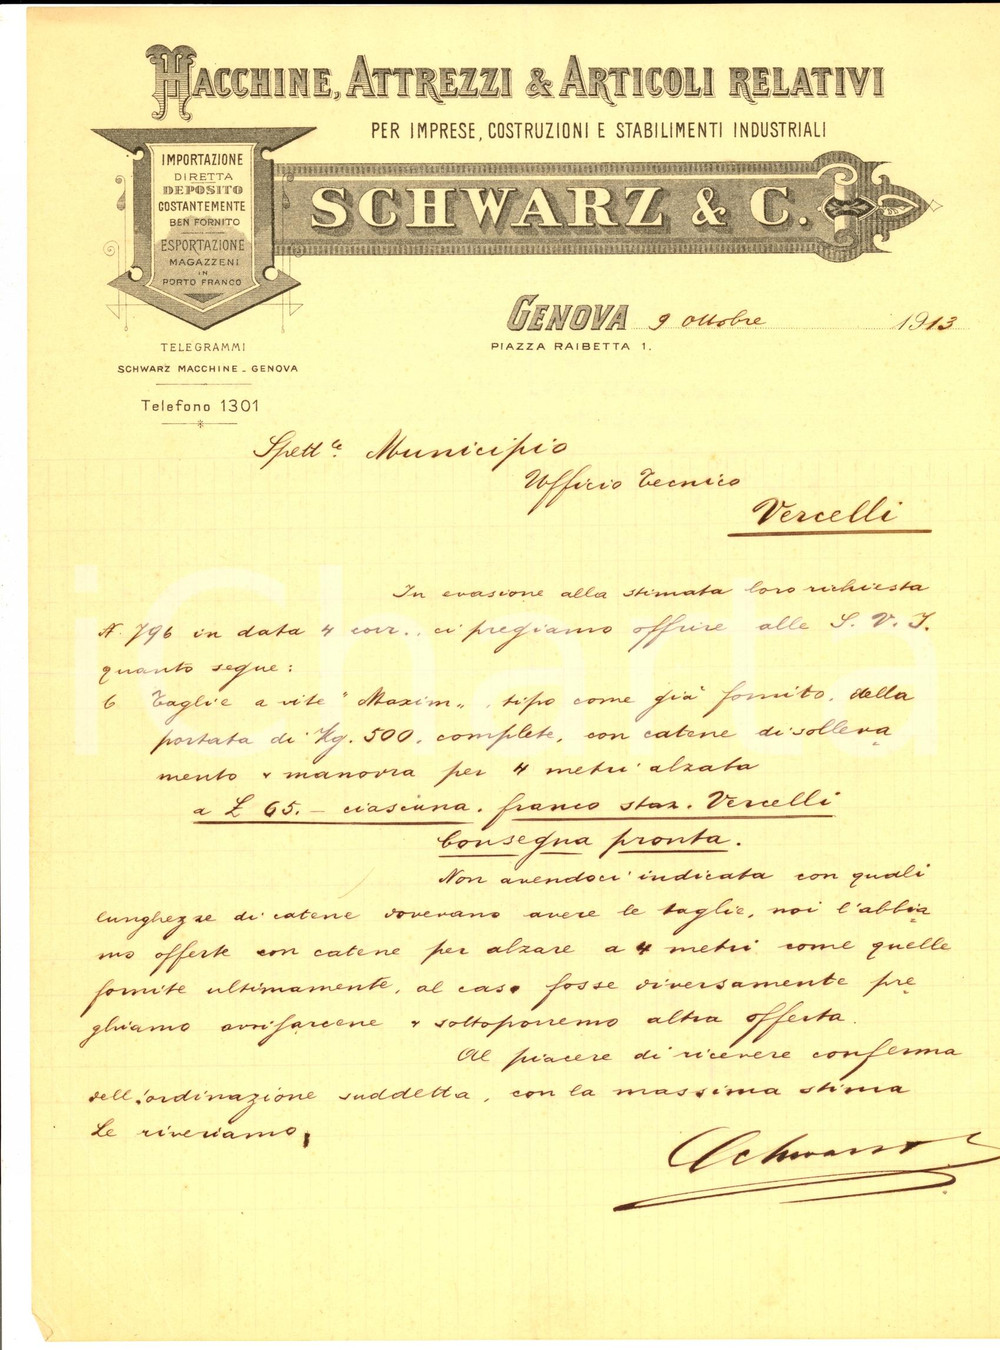 MACCHINE, ATTREZZI & ARTICOLI RELATIVI
PER IMPRESE, COSTRUZIONI E STABILIMENTI INDUSTRIALI
IMPORTAZIONE
DIRETTA
DEPOSITO
COSTANTEMENTE
BEN FORNITO
ESPORTAZIONE
MAGAZZENI
IN
PORTO FRANCO
SCHWARZ & C.
GENOVA 9 Ottobre 1913
PIAZZA RAIBETTA 1.
TELEGRAMMI
SCHWARZ MACCHINE - GENOVA
Telefono 1301
Spett.le Municipio
Ufficio Tecnico
Vercelli
In evasione alla stimata loro richiesta
N. 796 in data 4 corr., ci pregiamo offrire alle S. V. I.
quanto segue:
6 Taglie a vite "Maxim", tipo come già fornito, della
portata di Kg. 500, complete, con catene di solleva
mento & manovra per 4 metri alzata
a £ 65.- ciascuna. franco staz. Vercelli
Consegna pronta.
Non avendoci indicata con quali
lunghezze di catene dovevano avere le taglie, noi l'abbia
mo offerte con catene per alzare a 4 metri come quelle
fornite ultimamente, al caso fosse diversamente pre
ghiamo avvisarcene & sottoporremo altra offerta.
Al piacere di ricevere conferma
dell'ordinazione suddetta, con la massima stima
Le riveriamo,
Schwarz